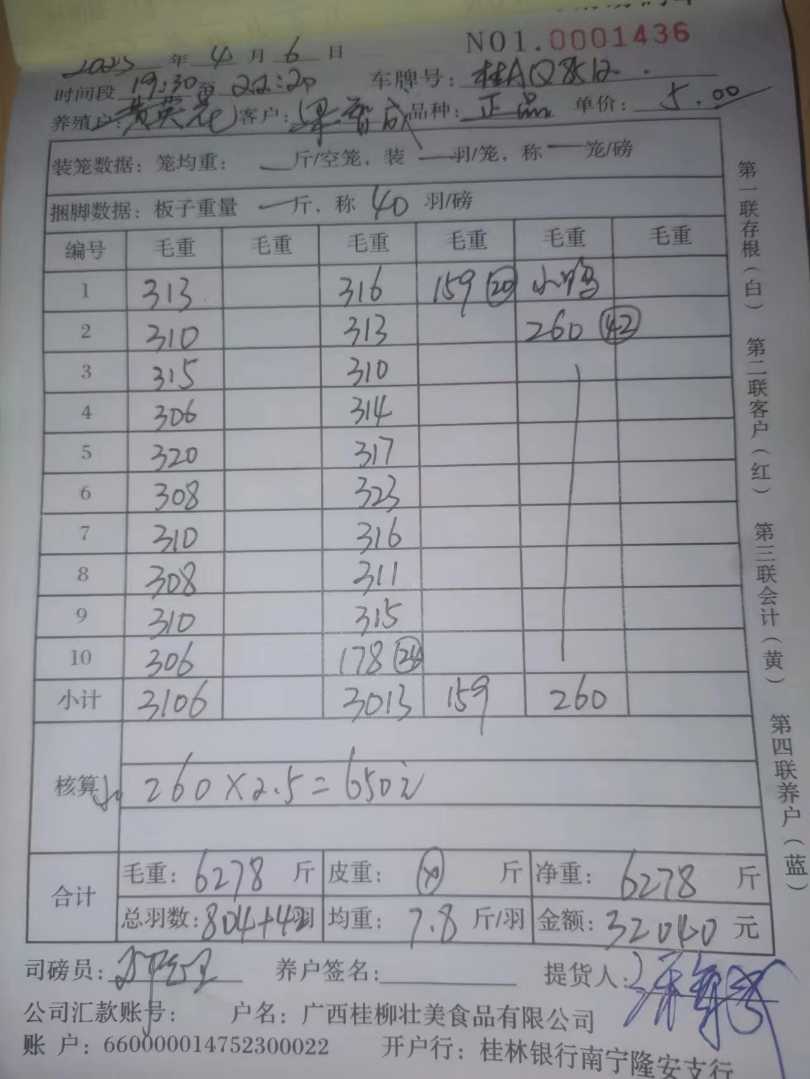 2025 年 4 月 6 日 NO1.0001436
时间段 19:30至 22:20 车牌号: 桂AQ
养殖户: 黄英花 客户: 梁智成 品种: 正品 单价: 5.00
装笼数据: 笼均重: — 斤/空笼, 装 — 羽/笼, 称 — 笼/磅
捆脚数据: 板子重量 — 斤, 称 40 羽/磅
编号 毛重 毛重 毛重 毛重 毛重 毛重
1 313 316 159 ⑳ 小鸭
2 310 313 260 ㊷
3 315 310
4 306 314
5 320 317
6 308 323
7 310 316
8 308 311
9 310 315
10 306 178
小计 3106 3013 159 260
核算 260×2.5=650
合计 毛重: 6278 斤 皮重: 斤 净重: 6278 斤
总羽数: 804+42羽 均重: 7.8 斤/羽 金额: 32040 元
司磅员: 养户签名: 提货人:
公司汇款账号: 户名: 广西桂柳壮美食品有限公司
账 户: 660000014752300022 开户行: 桂林银行南宁隆安支行
第一联存根(白) 第二联客户(红) 第三联会计(黄) 第四联养户(蓝)